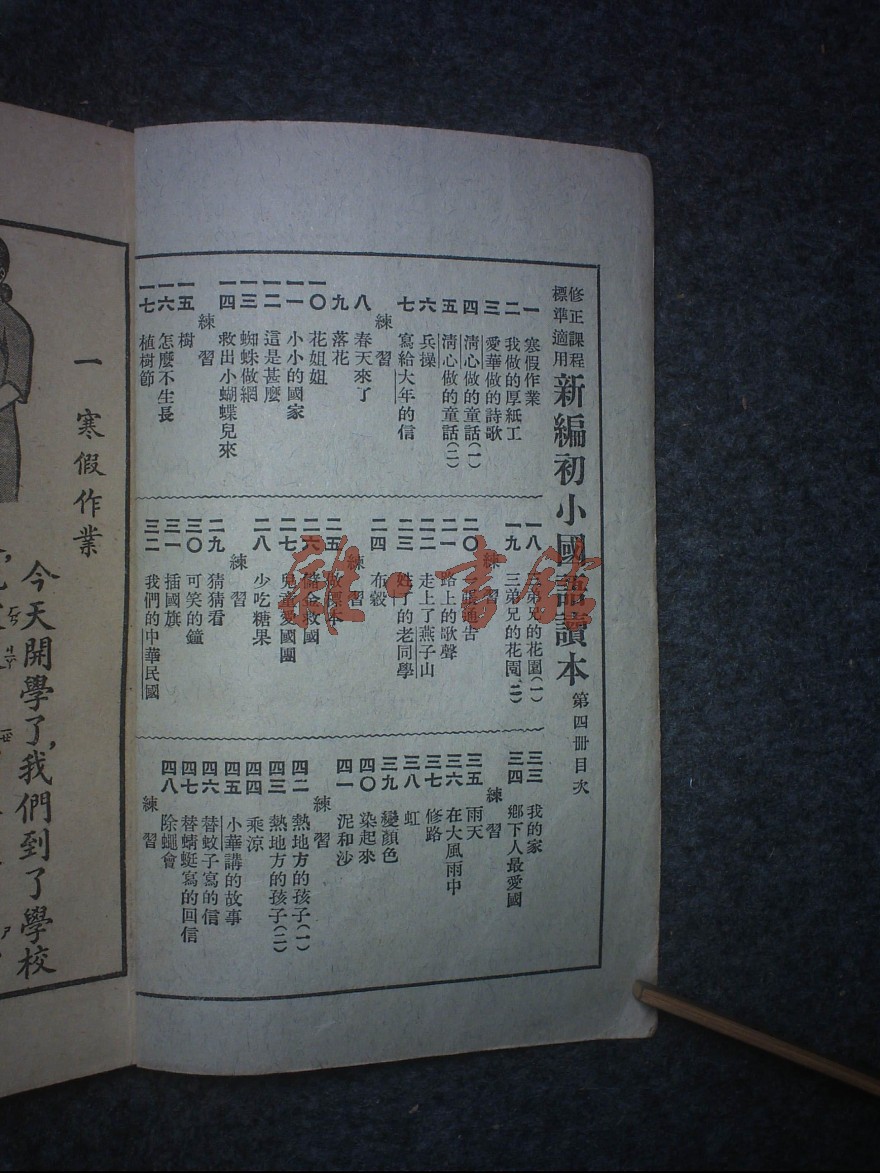 修正課程
標準適用
新編初小國語讀本 第四冊目次
一 寒假作業
二 我做的厚紙工
三 愛華做的詩歌
四 清心做的童話(一)
五 清心做的童話(二)
六 兵操
七 寫給大年的信
練習
八 春天來了
九 落花
一〇 花姐姐
一一 小小的國家
一二 這是甚麼
一三 蜘蛛做網
一四 救出小蝴蝶兒來
練習
一五 樹
一六 怎麼不生長
一七 植樹節
一八 三弟兄的花園(一)
一九 三弟兄的花園(二)
練習
二〇 一張通告
二一 路上的歌聲
二二 走上了燕子山
二三 姓丁的老同學
二四 布穀
練習
二五 做標本
二六 儲金救國
二七 兒童愛國團
二八 少吃糖果
練習
二九 猜猜看
三〇 可笑的鐘
三一 插國旗
三二 我們的中華民國
三三 我的家
三四 鄉下人最愛國
練習
三五 雨天
三六 在大風雨中
三七 修路
三八 虹
三九 變顏色
四〇 染起來
四一 泥和沙
練習
四二 熱地方的孩子(一)
四三 熱地方的孩子(二)
四四 乘涼
四五 小華講的故事
四六 替蚊子寫的信
四七 替蜻蜓寫的回信
四八 除蠅會
練習
雜·書館
一 寒假作業
今天開學了,我們到了學校